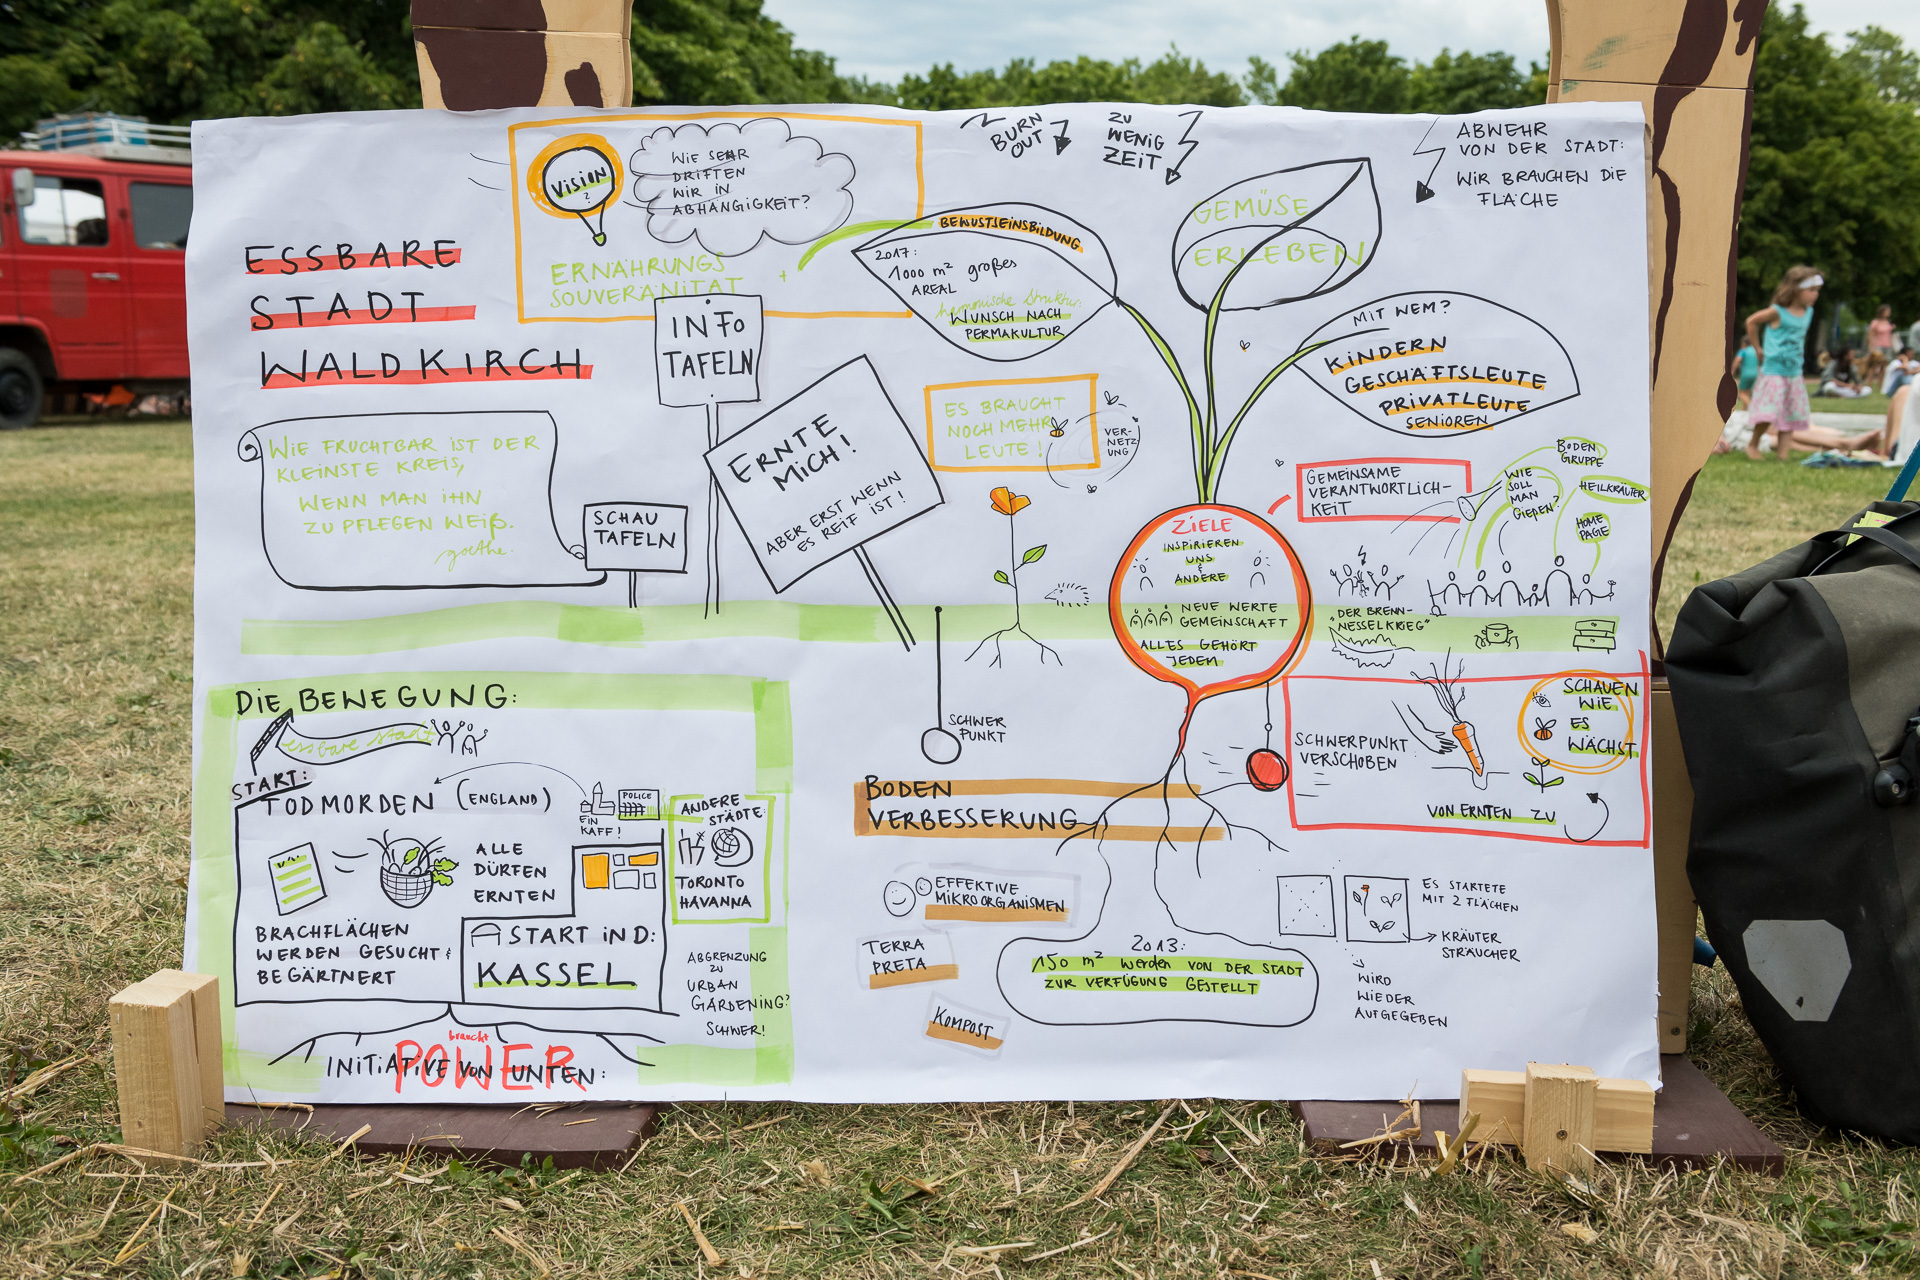 ESSBARE
STADT
WALDKIRCH
Vision
?
WIE SEHR
DRIFTEN
WIR IN
ABHÄNGIGKEIT?
ERNÄHRUNGS
SOUVERÄNITÄT +
BURN
OUT
ZU
WENIG
ZEIT
ABWEHR
VON DER STADT:
WIR BRAUCHEN DIE
FLÄCHE
BEWUSTSEINSBILDUNG
2017:
1000 m² großes
AREAL
harmonische Struktur
WUNSCH NACH
PERMAKULTUR
GEMÜSE
ERLEBEN
MIT WEM?
KINDERN
GESCHÄFTSLEUTE
PRIVATLEUTE
SENIOREN
INFO
TAFELN
ERNTE
MICH!
ABER ERST WENN
ES REIF IST!
SCHAU
TAFELN
WIE FRUCHTBAR IST DER
KLEINSTE KREIS,
WENN MAN IHN
ZU PFLEGEN WEIß.
goethe.
ES BRAUCHT
NOCH MEHR
LEUTE!
VER-
NETZ
UNG
ZIELE
INSPIRIEREN
UNS
&
ANDERE
NEUE WERTE
GEMEINSCHAFT
ALLES GEHÖRT
JEDEM
GEMEINSAME
VERANTWORTLICH-
KEIT
WIE
SOLL
MAN
GIEßEN?
BODEN
GRUPPE
HEILKRÄUTER
HOME
PAGE
DER BRENN-
"NESSELKRIEG"
SCHWER
PUNKT
SCHWERPUNKT
VERSCHOBEN
VON ERNTEN ZU
SCHAUEN
WIE
ES
WÄCHST
DIE BEWEGUNG:
essbare stadt
START:
TODMORDEN (ENGLAND)
EIN
KAFF!
POLICE
ANDERE
STÄDTE:
TORONTO
HAVANNA
ALLE
DÜRFEN
ERNTEN
BRACHFLÄCHEN
WERDEN GESUCHT &
BEGÄRTNERT
START IN D:
KASSEL
ABGRENZUNG
ZU
URBAN
GARDENING?
SCHWER!
braucht
POWER
INITIATIVE VON UNTEN:
BODEN
VERBESSERUNG
EFFEKTIVE
MIKROORGANISMEN
TERRA
PRETA
KOMPOST
2013:
150 m² werden VON DER STADT
ZUR VERFÜGUNG GESTELLT
ES STARTETE
MIT 2 FLÄCHEN
KRÄUTER
STRÄUCHER
WIRD
WIEDER
AUFGEGEBEN